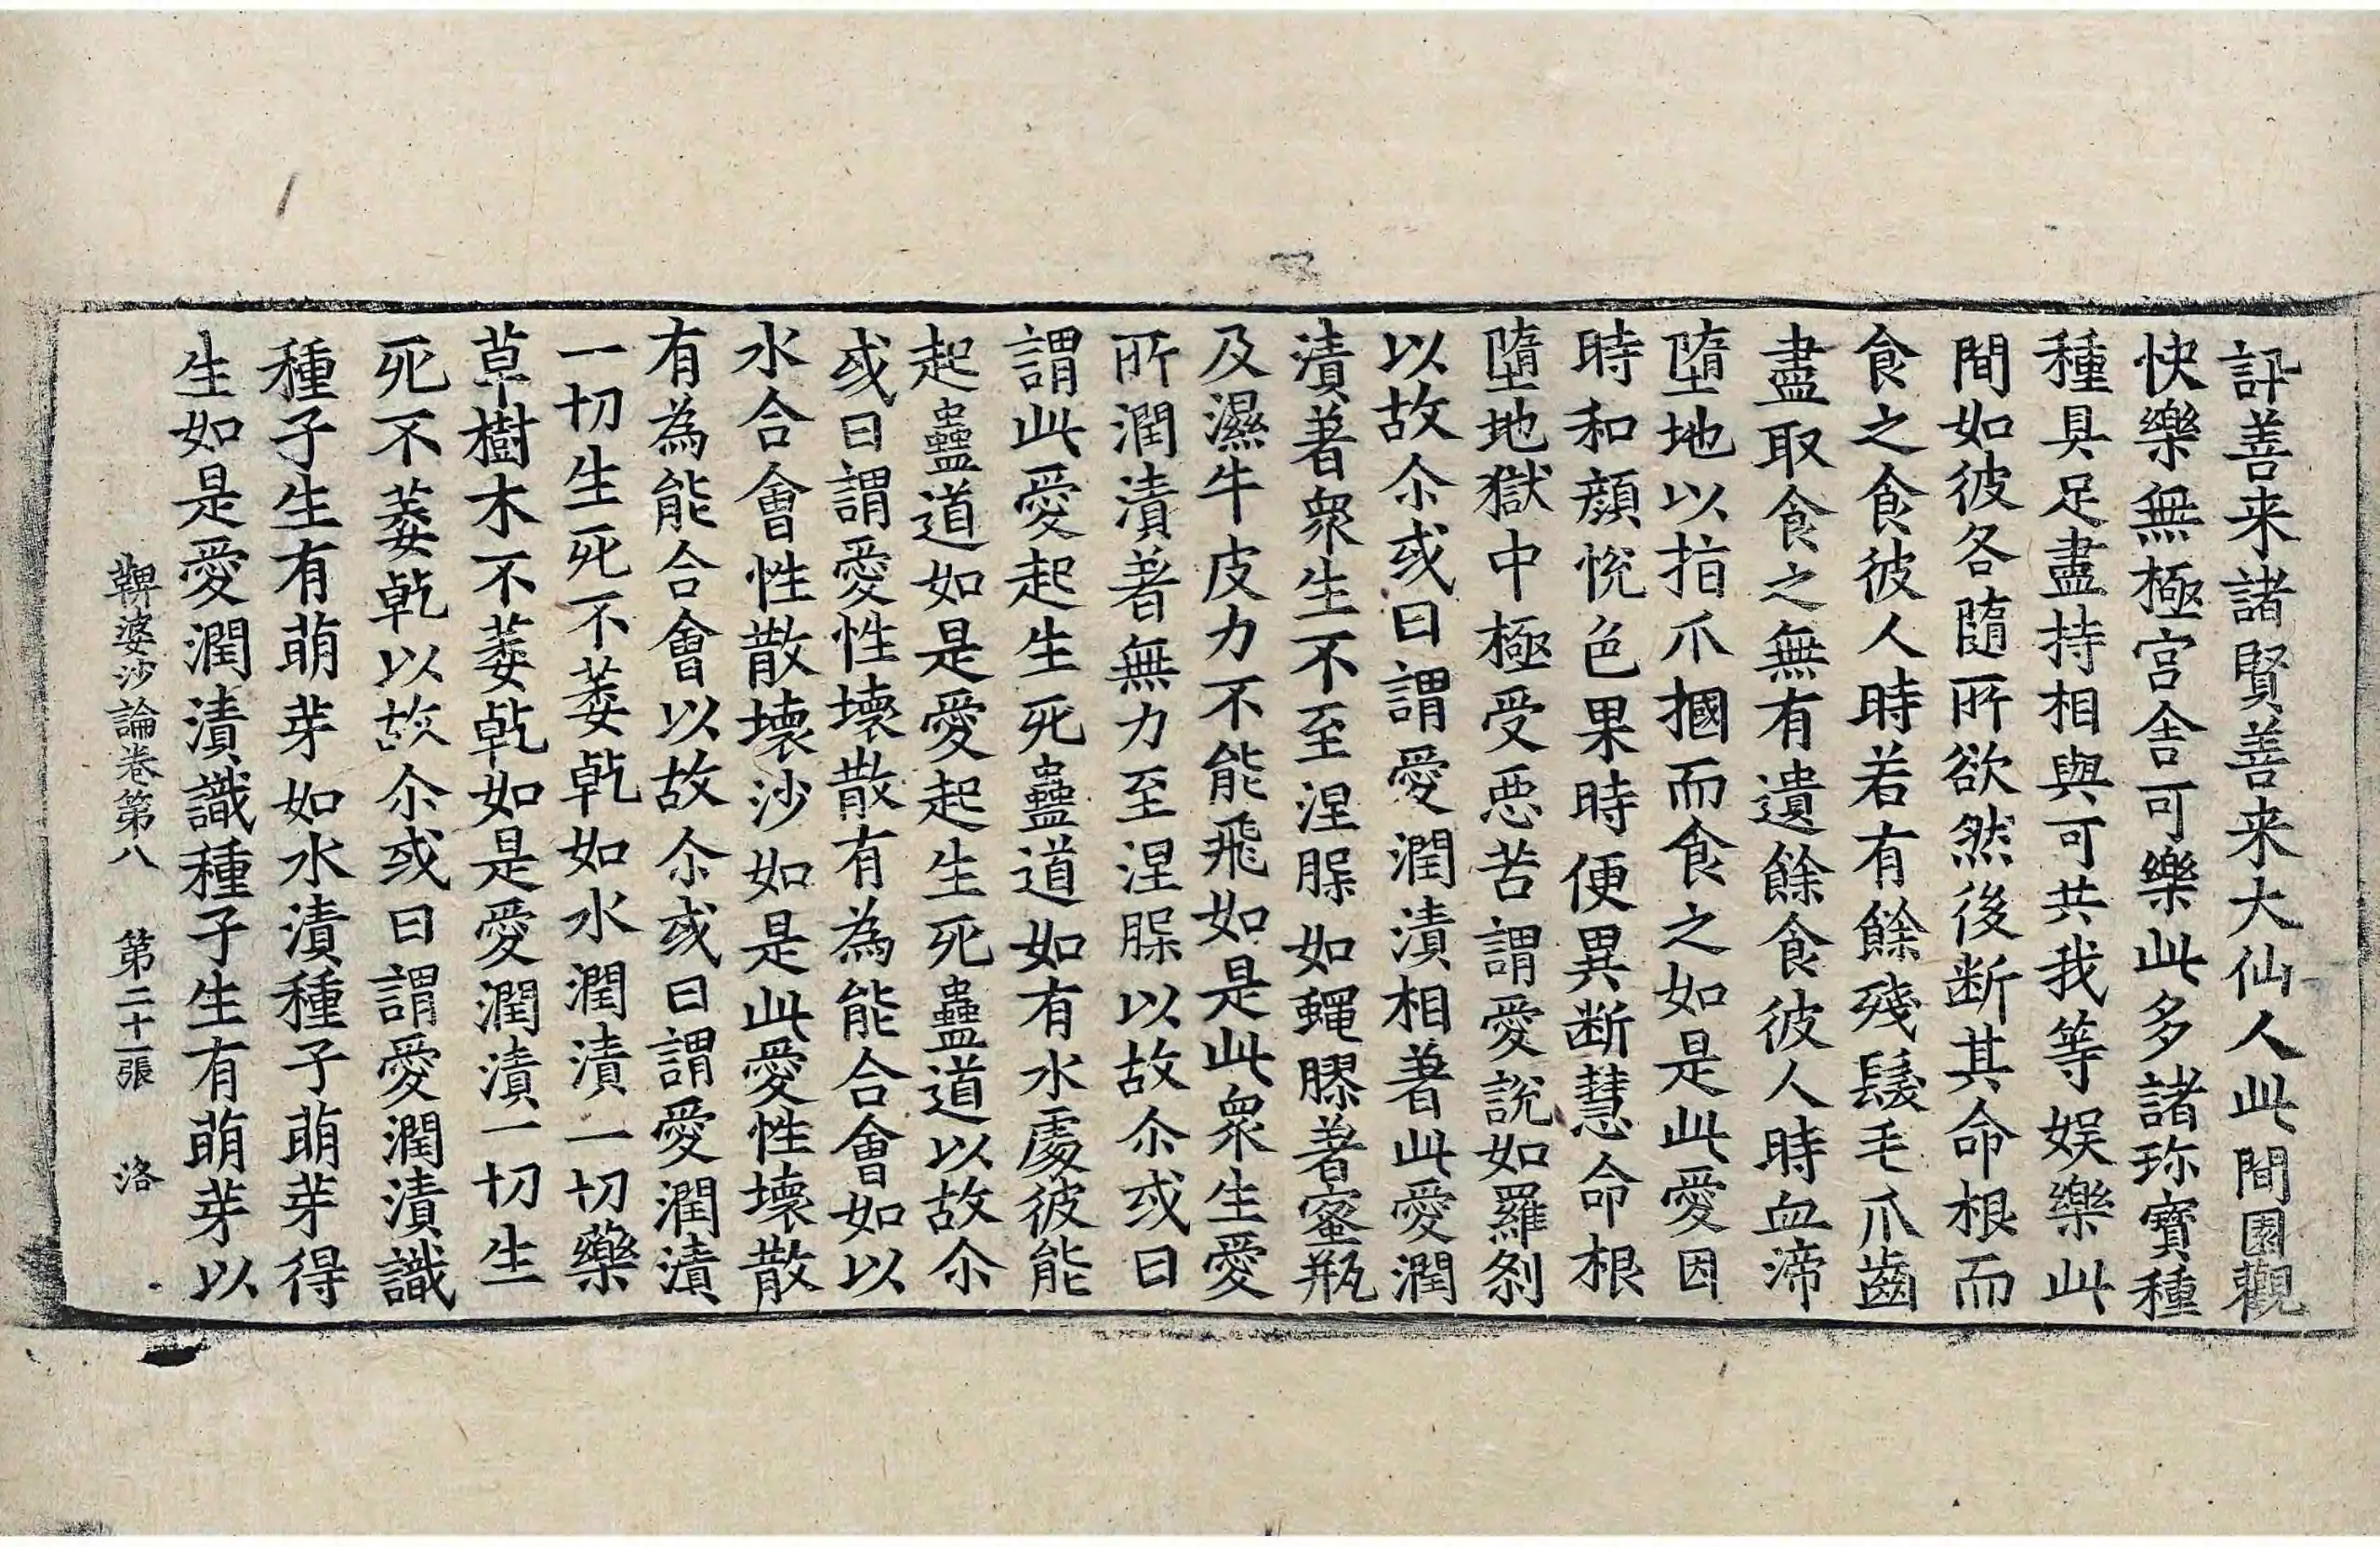 訊善来諸賢善来大仙人此間園觀
快樂無極宫舎可樂此多諸珎寶種
種具足盡持相與可共我等娱樂此
間如彼各隨所欲然後断其命根而
食之食彼人時若有餘殘髮毛爪齒
盡取食之無有遺餘食彼人時血渧
墮地以指爪摑而食之如是此愛因
時和顔悅色果時便異断慧命根
墮地獄中極受惡苦謂愛説如羅刹
以故尒或曰謂愛潤漬相著此愛潤
漬著衆生不至涅槃如蠅膠著蜜瓶
及濕牛皮力不能飛如是此衆生愛
所潤漬著無力至涅槃以故尒或曰
謂此愛起生死蠱道如有水處彼能
起蠱道如是愛起生死蠱道以故尒
或曰謂愛性壞散有為能合會如以
水合會性散壞沙如是此愛性壞散
有為能合會以故尒或曰謂愛潤漬
一切生死不萎乹如水潤漬一切藥
草樹木不萎乹如是愛潤漬一切生
死不萎乹以故尒或曰謂愛潤漬識
種子生有萌芽如水漬種子萌芽得
生如是愛潤漬識種子生有萌芽以
鞞婆沙論卷第八　第二十一張　洛